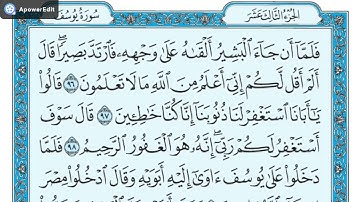 ApowerEdit
سُورَةُ يُوسُفَ
الجُزْءُ الثَّالِثَ عَشَرَ
فَلَمَّآ أَن جَآءَ ٱلْبَشِيرُ أَلْقَىٰهُ عَلَىٰ وَجْهِهِۦ فَٱرْتَدَّ بَصِيرًا ۖ قَالَ
أَلَمْ أَقُل لَّكُمْ إِنِّىٓ أَعْلَمُ مِنَ ٱللَّهِ مَا لَا تَعْلَمُونَ ٩٦ قَالُوا۟
يَـٰٓأَبَانَا ٱسْتَغْفِرْ لَنَا ذُنُوبَنَآ إِنَّا كُنَّا خَـٰطِـِٔينَ ٩٧ قَالَ سَوْفَ
أَسْتَغْفِرُ لَكُمْ رَبِّىٓ ۖ إِنَّهُۥ هُوَ ٱلْغَفُورُ ٱلرَّحِيمُ ٩٨ فَلَمَّا
دَخَلُوا۟ عَلَىٰ يُوسُفَ ءَاوَىٰٓ إِلَيْهِ أَبَوَيْهِ وَقَالَ ٱدْخُلُوا۟ مِصْرَ